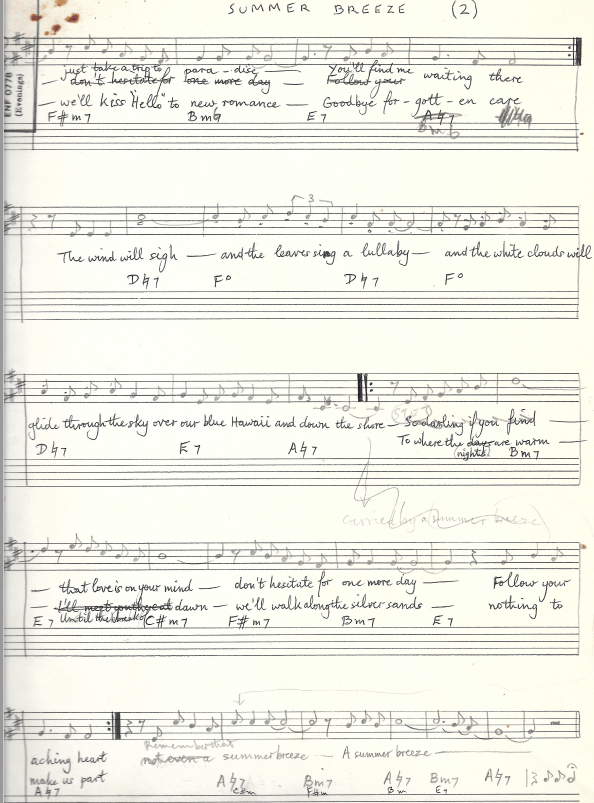 SUMMER BREEZE (2)
ENF 0778
(Evenings)
just take a trip to para - dise You'll find me waiting there
don't hesitate for one more day Follow your
we'll kiss "Hello" to new romance Goodbye for - gott - en care
F#m7 Bm9 E7 A♮7
Bm6
3
The wind will sigh and the leaves sing a lullaby and the white clouds will
D♮7 F° D♮7 F°
glide through the sky over our blue Hawaii and down the shore So darling if you find
To where the days are warm
(nights)
D♮7 E7 A♮7 Bm7
carried by a (summer breeze)
that love is on your mind don't hesitate for one more day Follow your
I'll meet you there at dawn we'll walk along the silver sands nothing to
Until the break of
E7 C#m7 F#m7 Bm7 E7
Remember that
aching heart not even a summer breeze A summer breeze
make us part
A♮7 A♮7 Bm7 A♮7 Bm7 A♮7
C#m F#m Bm E7